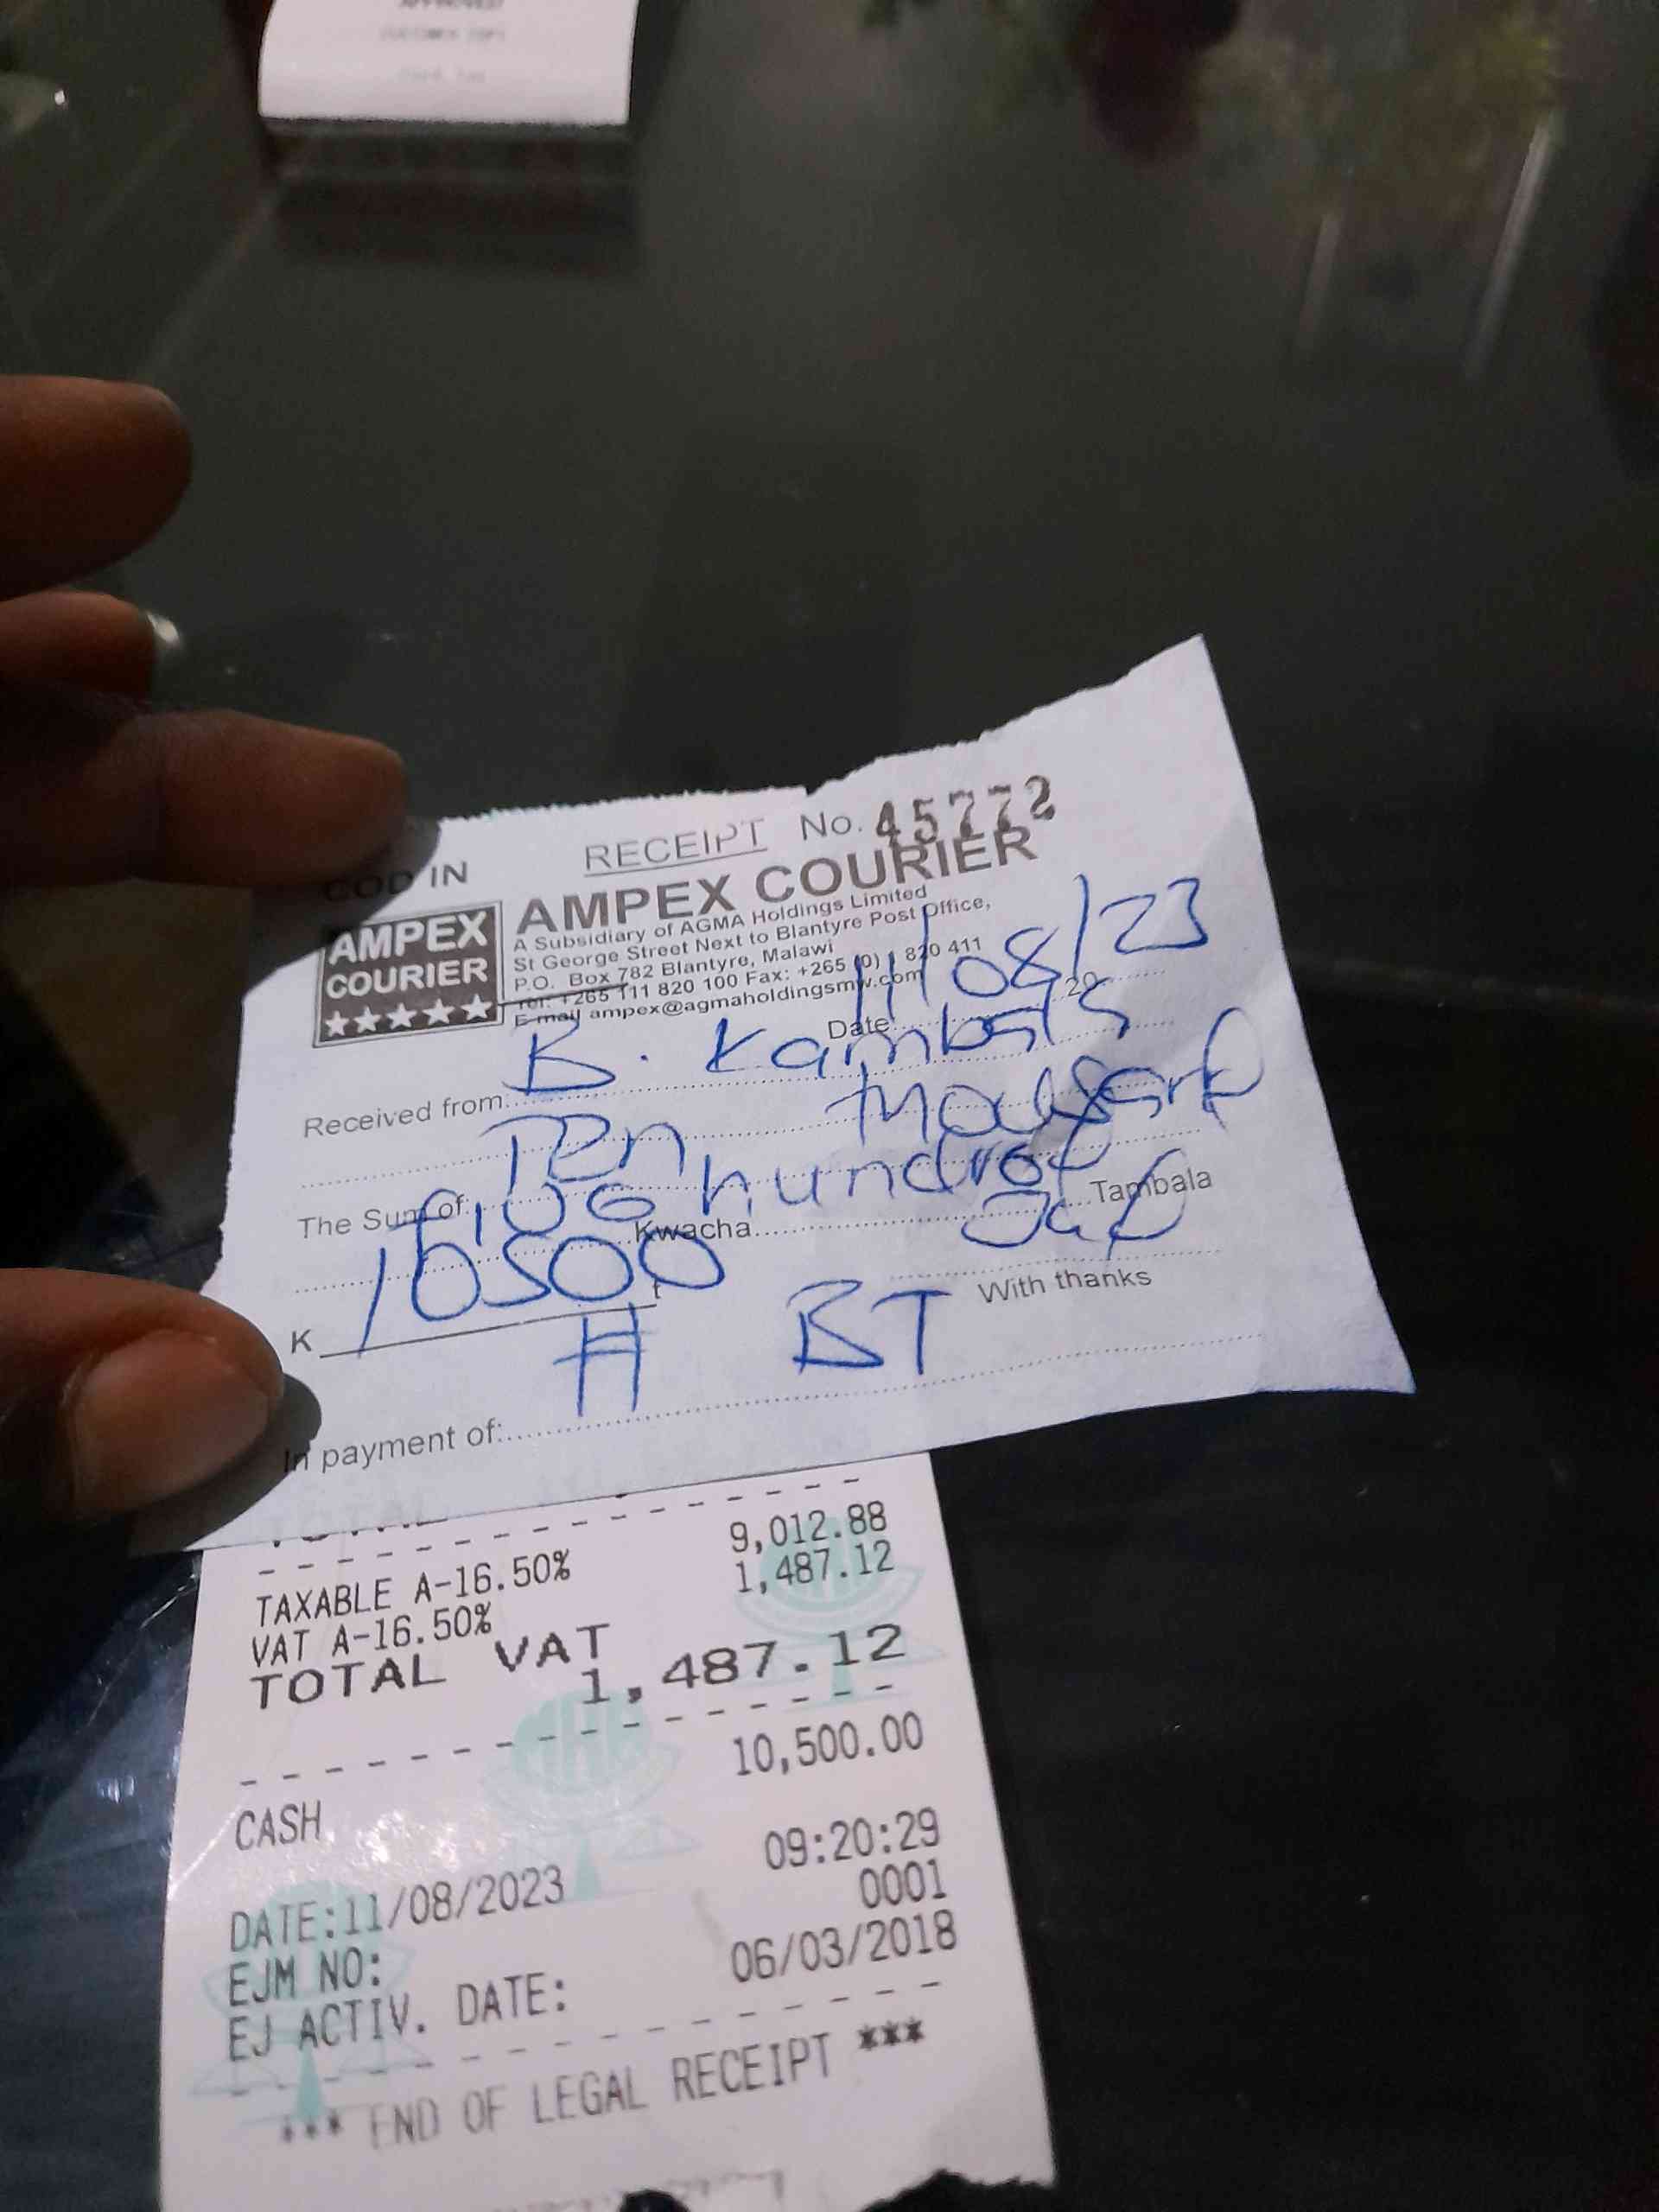 APPROVED!
CUSTOMER COPY
COD IN
RECEIPT No. 45772
AMPEX COURIER
AMPEX COURIER
A Subsidiary of AGMA Holdings Limited
St George Street Next to Blantyre Post Office,
P.O. Box 782 Blantyre, Malawi
Tel: +265 111 820 100 Fax: +265 (0) 1 820 411
E-mail ampex@agmaholdingsmw.com
Date 11/08/23 20
Received from: B.
Ten thousand
The Sum of: five hundred
Kwacha Tambala
K 10500
With thanks
In payment of: BT
TOTAL
TAXABLE A-16.50% 9,012.88
VAT A-16.50% 1,487.12
TOTAL VAT
1,487.12
CASH 10,500.00
DATE:11/08/2023 09:20:29
EJM NO: 0001
EJ ACTIV. DATE: 06/03/2018
*** END OF LEGAL RECEIPT ***